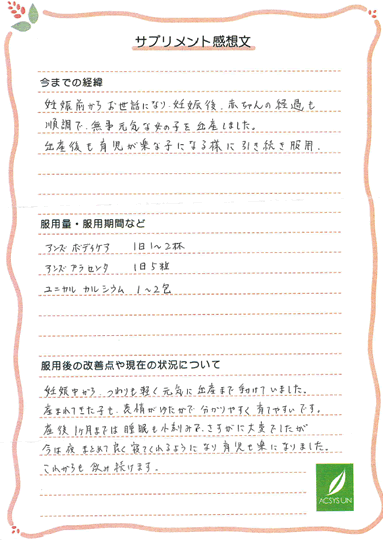 サプリメント感想文
今までの経緯
妊娠前からお世話になり、妊娠後、赤ちゃんの経過も
順調で、無事元気な女の子を出産しました。
出産後も育児が楽な子になる様に引き続き服用。
服用量・服用期間など
アンズ ボディケア 1日1〜2杯
アンズ プラセンタ 1日5粒
ユニカル カルシウム 1〜2包
服用後の改善点や現在の状況について
妊娠中から、つわりも軽く元気に出産まで動けていました。
産まれてきた子も、表情がゆたかで分かりやすく育てやすいです。
産後1ヶ月までは睡眠も小刻みで、さすがに大変でしたが
今は夜まとめて良く寝てくれるようになり育児も楽になりました。
これからも飲み続けます。
ACSYSUN